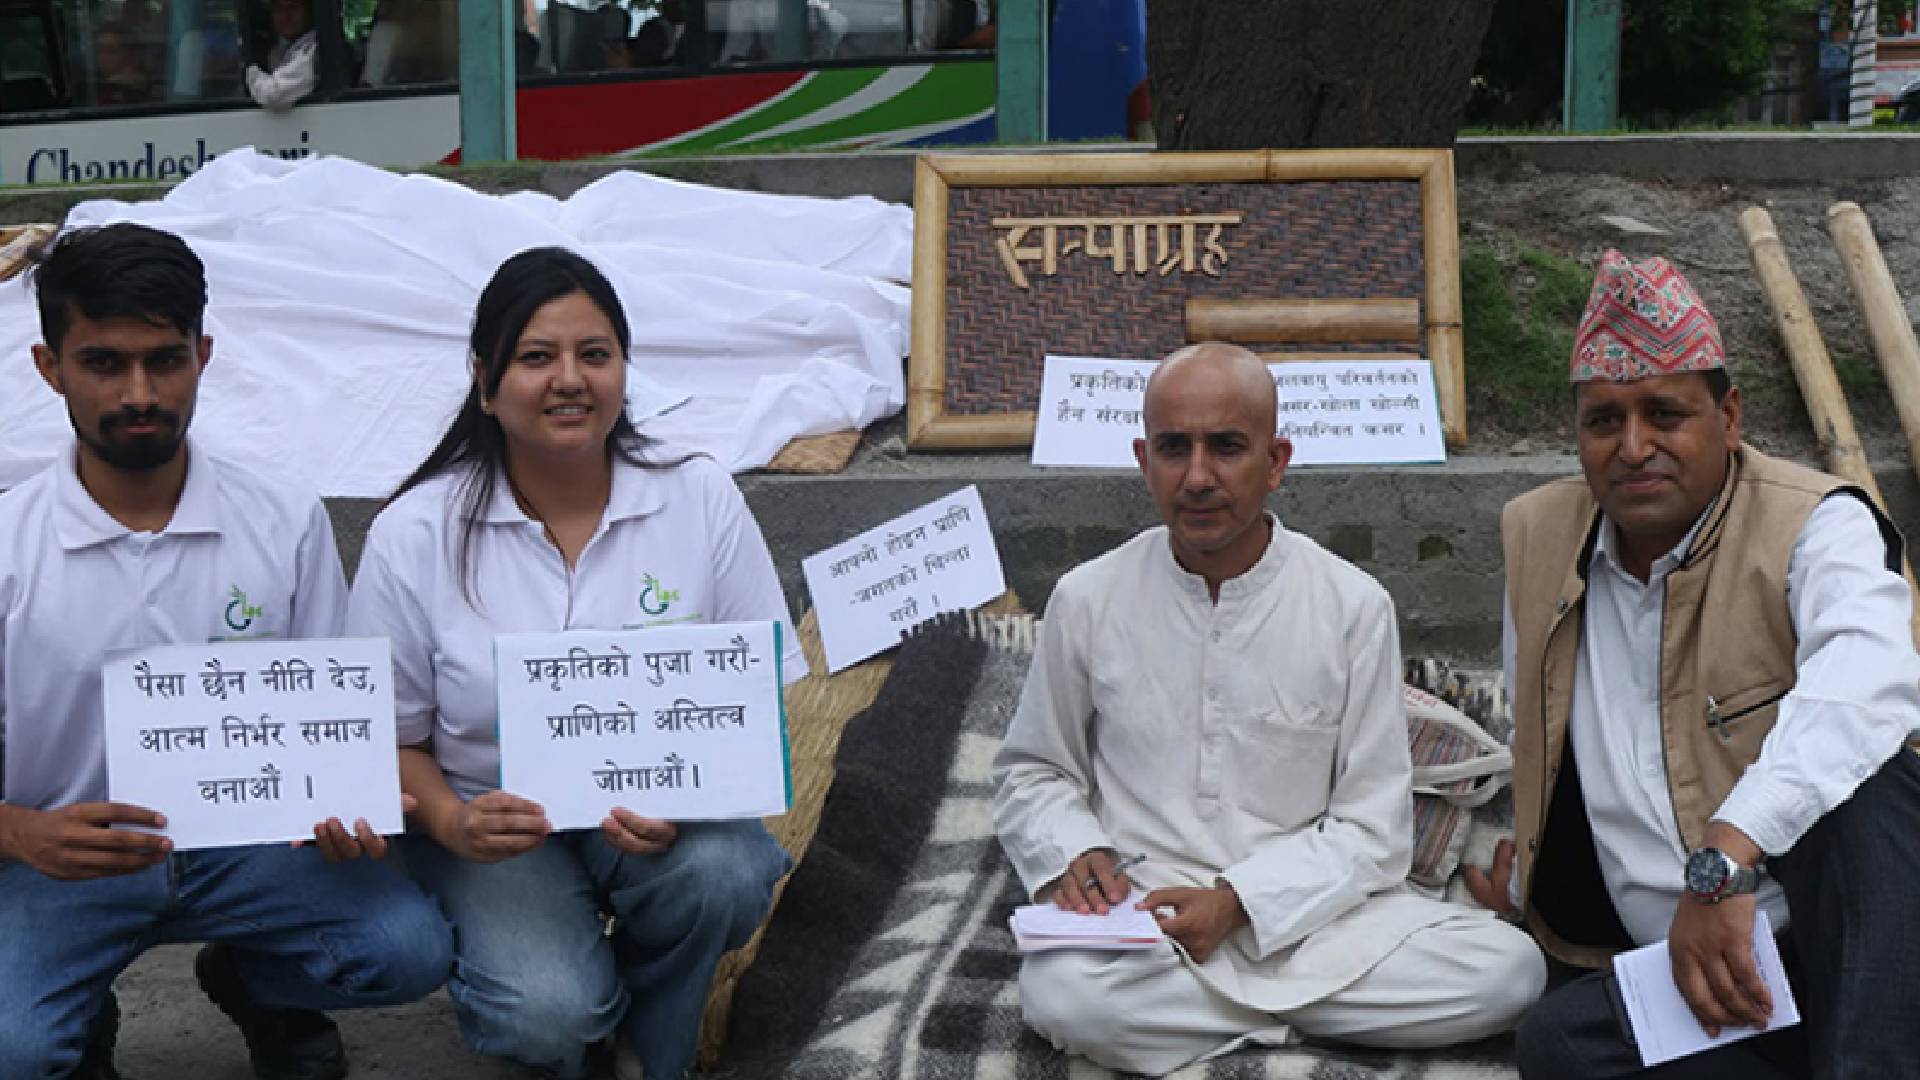 Chandeshwari
सत्याग्रह
प्रकृतिको
जलवायु परिवर्तनको
हैन संरक्ष
असर-खोला खोल्सी
अनियन्त्रित कसर ।
आफ्नो होइन प्राणि
-जगतको चिन्ता
गरौं ।
पैसा छैन नीति देउ,
आत्म निर्भर समाज
बनाऔं ।
प्रकृतिको पुजा गरौं-
प्राणिको अस्तित्व
जोगाऔं।